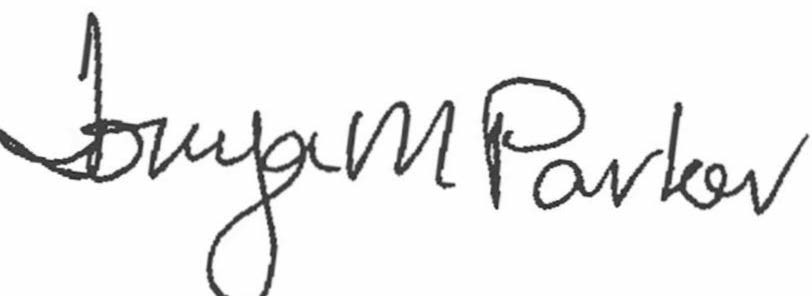 Tonya M Parker